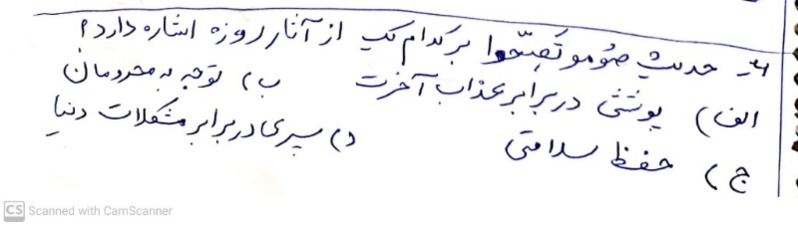 ۴- حدیث صُومُو تَصِحّوا بر کدام یک از آثار روزه اشاره دارد؟
الف) پوششی در برابر عذاب آخرت ب) توجه به محرومان
ج) حفظ سلامتی د) سپری در برابر مشکلات دنیا
CS Scanned with CamScanner